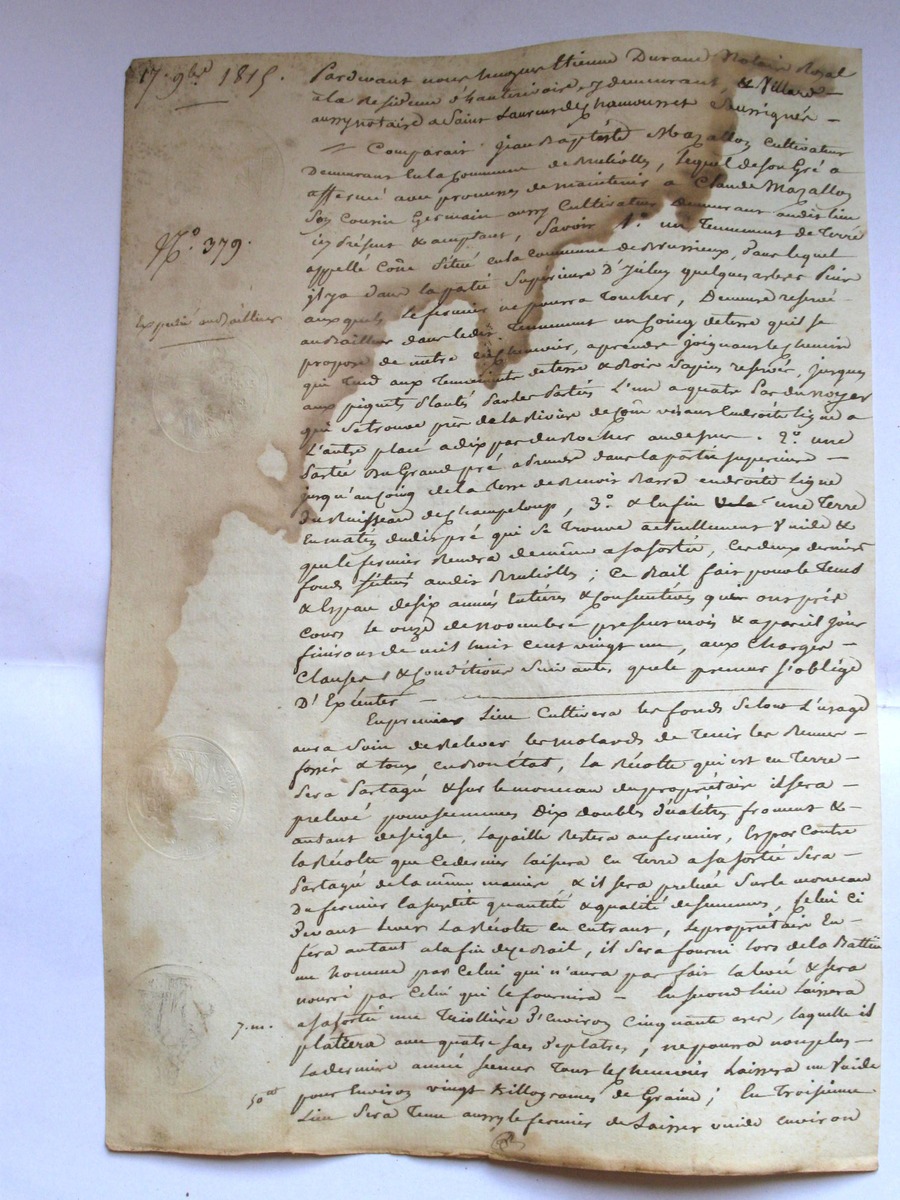 17. 9bre 1815.
Pardevant nous Etienne Durand Notaire Royal
à la Résidence d'hauterivoire, y demeurant, & Villard
aussy notaire a Saint Laurent de Chamousset Soussignés
Comparait Jean Baptiste Mazallon Cultivateur
Demeurant En la Commune de Brulliolles, lequel de Son Gré a
affermé avec promesse de maintenir a Claude Mazallon
Son Cousin Germain aussy Cultivateur Demeurant audit lieu
icy Présent & acceptant, Savoir 1º un Tennement de Terre
N.º 379.
appellé Coûe Situé en la commune de Brussieux, dans lequel
il y a dans la partie Superieure quelques arbres
Expédié au Bailleur
auxquels le fermier ne pourra Toucher, Demeure reservé
au Bailleur dans ledit Tennement un Coing de terre qu'il se
propose de mettre en Chenevier, a prendre joignant le Chemin
qui Tend aux de terre & Bois Sapins reservés, jusques
aux piquets Plantés Par des Parties L'un a quatre Pas du noyer
qui Se trouve près de la Rivière de Coûe visant En droite ligne a
L'autre placé a dix pas du Rocher au dessus. 2º une
Partie du Grand pré a prendre dans la partie superieure
jusqu'au Coing de la Terre de Benoit en droite ligne
Du Ruisseau de Champeloup, 3º & Enfin une Terre
En matin dudit pré qui Se Trouve actuellement Vuide &
que le fermier Rendra de même a sa Sortie, Ces deux derniers
fonds Situés audit Brulliolles; Ce Bail fait pour le Tems
& Espace de Six années Entieres & Consecutives qui ont pris
Cours le onze de novembre présent mois & a pareil jour
finiront de mil huit Cent vingt un, aux Charges
Clauses & Conditions Suivantes que le preneur S'oblige
D'Exécuter
En premier Lieu Cultivera les fonds Selon L'usage
aura Soin de Relever les molards de Tenir les
fossés & toux en Bon état, la Récolte qui est en Terre
Sera Partagée & Sur le monceau du propriétaire il Sera
prelevé pour Semences Dix doubles Décalitres froment &
autant de Seigle, la paille Restera au fermier, Et par Contre
la Récolte que Ce dernier laissera en Terre a sa Sortie Sera
Partagée de la même maniere, & il sera prelevé Sur le monceau
Du fermier la Susdite quantité & qualité de Semences, Celui ci
Devant lever la Récolte en Entrant, le propriétaire En
fera autant a la fin de ce Bail, il Sera fourni lors de la Batture
un homme par Celui qui n'aura pas fait & sera
nourri par Celui qui le fournira — En Second lieu Laissera
7. m.
a sa Sortie une Triolliere D'Environ Cinquante ares, laquelle il
platrera avec quatre Sacs de platre, ne pourra non plus
la derniere année Semer Tout le Chenevier Laissera un Vuide
50 ares
pour Environ vingt Killogrames de Graine; En Troisieme
Lieu Sera Tenu aussy le fermier de Laisser vuide environ